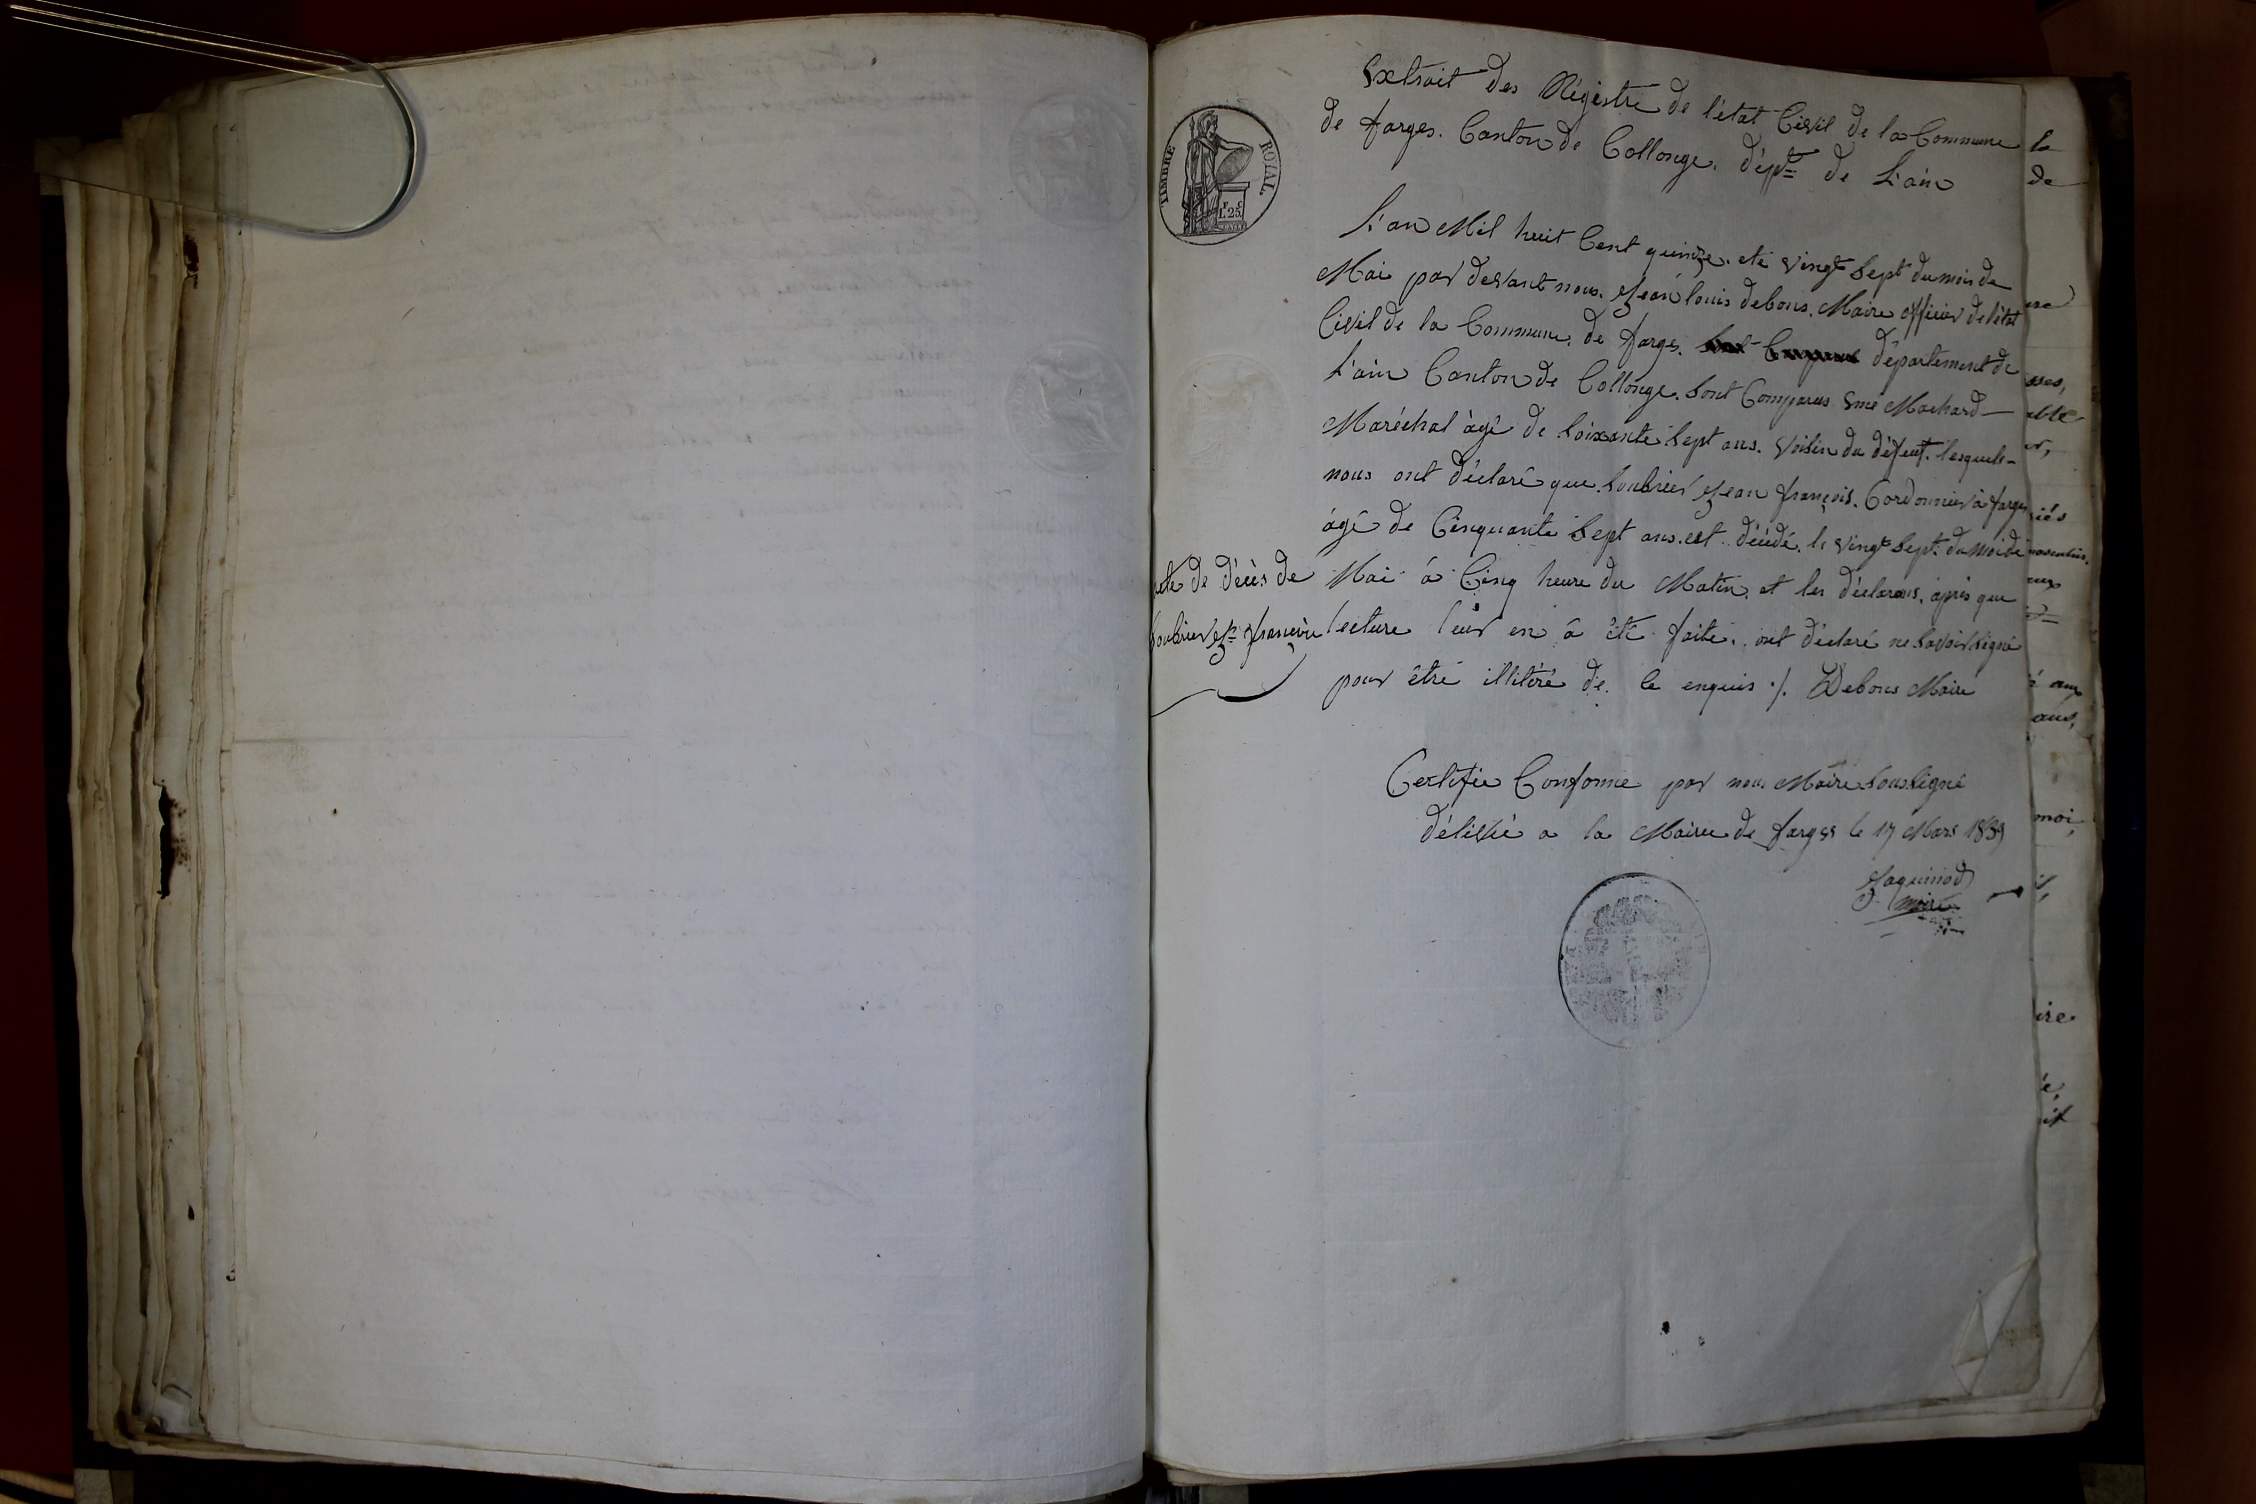 TIMBRE ROYAL
F. C.
L. 25.
Extrait des Régistre de l'état Civil de la Commune
de farges. Canton de Collonge. dépt de L'ain
L'an Mil huit Cent quinze. et le vingt Sept du mois de
Mai par devant nous. Jean louis debons. Maire officier de l'état
Civil de la Commune. de farges. département de
L'ain Canton de Collonge. Sont Comparus Machard
Maréchal àgé de Soixante Sept ans. voisin du défunt. lesquels
nous ont déclaré que Soubrier Jean françois. Cordonnier à farges
àgé de Cinquante Sept ans. est décédé. le vingt Sept. du moi de
Mai à Cinq heure du Matin. et les déclarans. après que
lecture leur en à été faite. ont déclaré ne Savoir Signé
pour être illitéré de. le enquis ./. Debons Maire
acte de décès de
Soubrier Jn françois
Certifié Conforme par nous Maire Soussigné
délivré a la Mairie de farges le 17 Mars 1839
Jaquinod
maire
la
de
able
moi,
ire